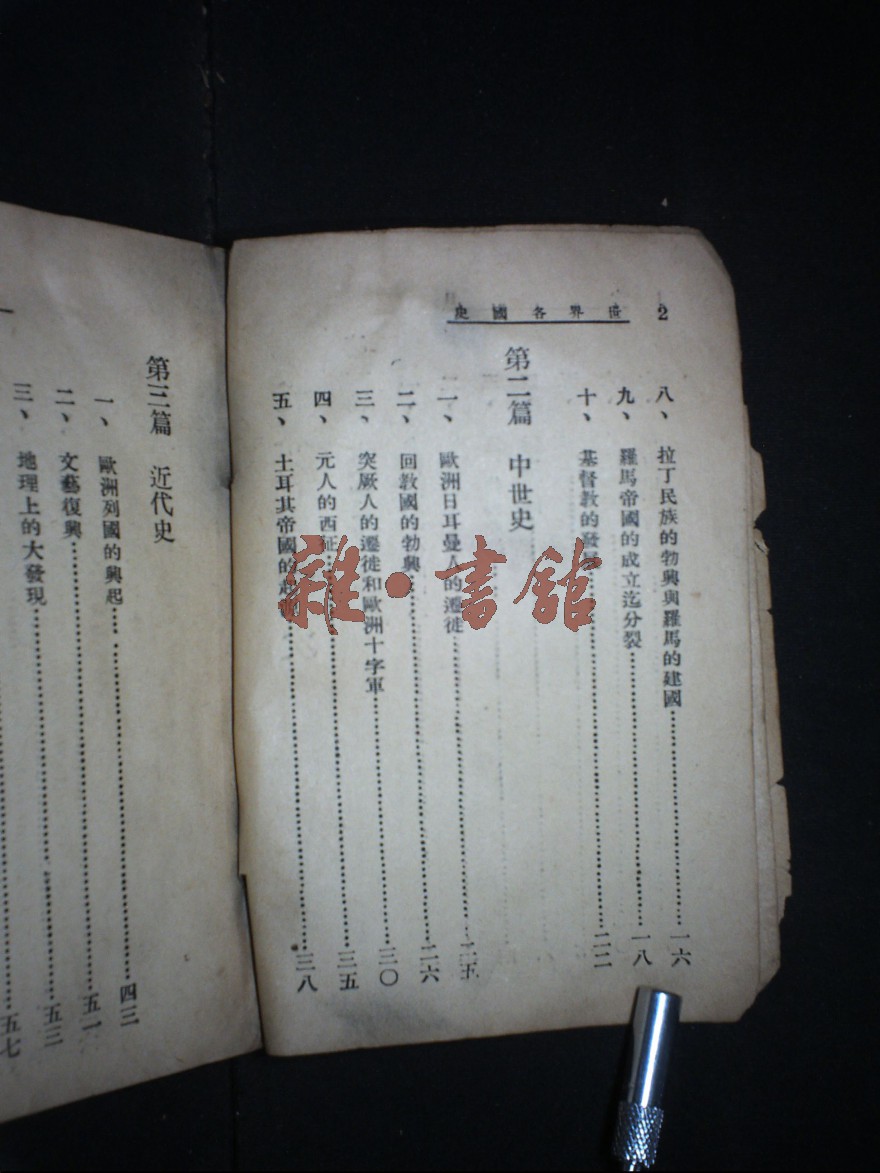 2 世界各國史
八、拉丁民族的勃興與羅馬的建國……一六
九、羅馬帝國的成立迄分裂……一八
十、基督教的發……二二
第二篇 中世史
一、歐洲日耳曼人的遷徙……二五
二、回教國的勃興……二六
三、突厥人的遷徙和歐洲十字軍……三〇
四、元人的西征……三五
五、土耳其帝國的……三八
第三篇 近代史
一、歐洲列國的興起……四三
二、文藝復興……五一
三、地理上的大發現……五三
五七
雜·書館